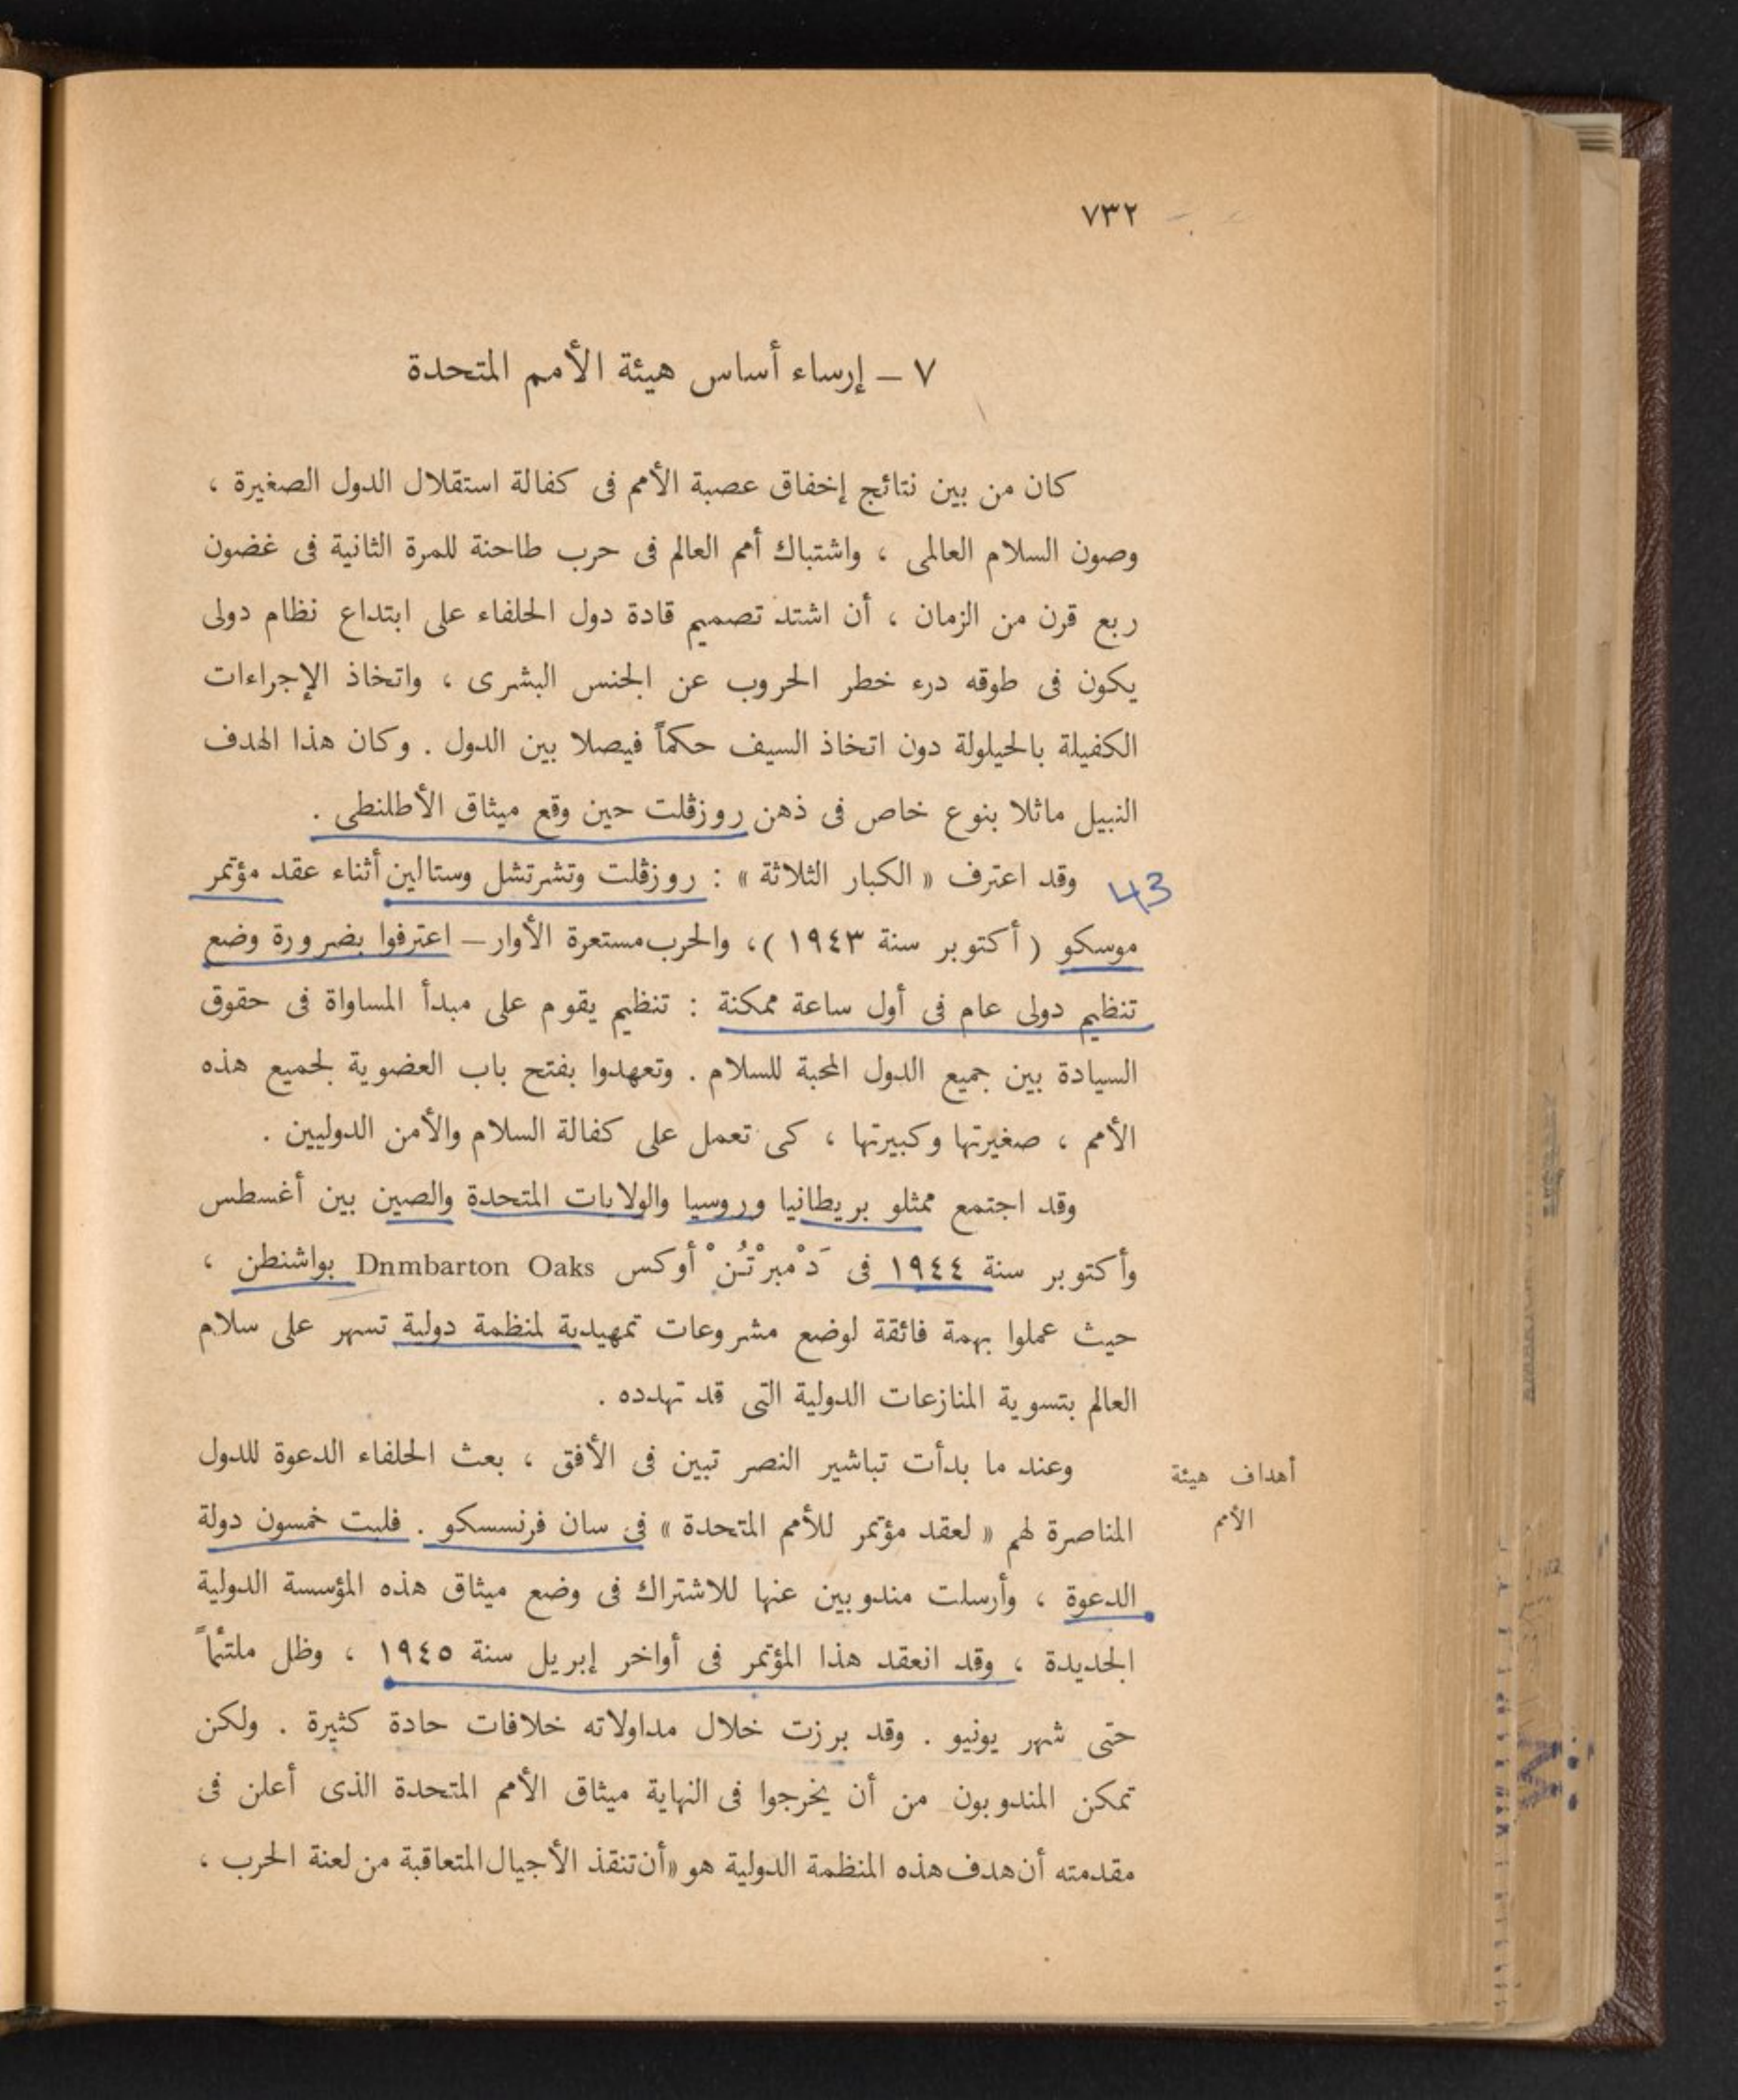 ٧٣٢
٧ – إرساء أساس هيئة الأمم المتحدة
كان من بين نتائج إخفاق عصبة الأمم فى كفالة استقلال الدول الصغيرة ،
وصون السلام العالمى ، واشتباك أمم العالم فى حرب طاحنة للمرة الثانية فى غضون
ربع قرن من الزمان ، أن اشتد تصميم قادة دول الحلفاء على ابتداع نظام دولى
يكون فى طوقه درء خطر الحروب عن الجنس البشرى ، واتخاذ الإجراءات
الكفيلة بالحيلولة دون اتخاذ السيف حكماً فيصلا بين الدول . وكان هذا الهدف
النبيل ماثلا بنوع خاص فى ذهن روزڤلت حين وقع ميثاق الأطلنطى .
43 وقد اعترف « الكبار الثلاثة » : روزڤلت وتشرتشل وستالين أثناء عقد مؤتمر
موسكو ( أكتوبر سنة ١٩٤٣ )، والحرب مستعرة الأوار – اعترفوا بضرورة وضع
تنظيم دولى عام فى أول ساعة ممكنة : تنظيم يقوم على مبدأ المساواة فى حقوق
السيادة بين جميع الدول المحبة للسلام . وتعهدوا بفتح باب العضوية لجميع هذه
الأمم ، صغيرتها وكبيرتها ، كى تعمل على كفالة السلام والأمن الدوليين .
وقد اجتمع ممثلو بريطانيا وروسيا والولايات المتحدة والصين بين أغسطس
وأكتوبر سنة ١٩٤٤ فى دَمْبرْتُنْ أوكس Dnmbarton Oaks بواشنطن ،
حيث عملوا بهمة فائقة لوضع مشروعات تمهيدية لمنظمة دولية تسهر على سلام
العالم بتسوية المنازعات الدولية التى قد تهدده .
أهداف هيئة
الأمم
وعند ما بدأت تباشير النصر تبين فى الأفق ، بعث الحلفاء الدعوة للدول
المناصرة لهم « لعقد مؤتمر للأمم المتحدة » فى سان فرنسسكو . فلبت خمسون دولة
الدعوة ، وأرسلت مندوبين عنها للاشتراك فى وضع ميثاق هذه المؤسسة الدولية
الجديدة ، وقد انعقد هذا المؤتمر فى أواخر إبريل سنة ١٩٤٥ ، وظل ملتئماً
حتى شهر يونيو . وقد برزت خلال مداولاته خلافات حادة كثيرة . ولكن
تمكن المندوبون من أن يخرجوا فى النهاية ميثاق الأمم المتحدة الذى أعلن فى
مقدمته أن هدف هذه المنظمة الدولية هو «أن تنقذ الأجيال المتعاقبة من لعنة الحرب ،